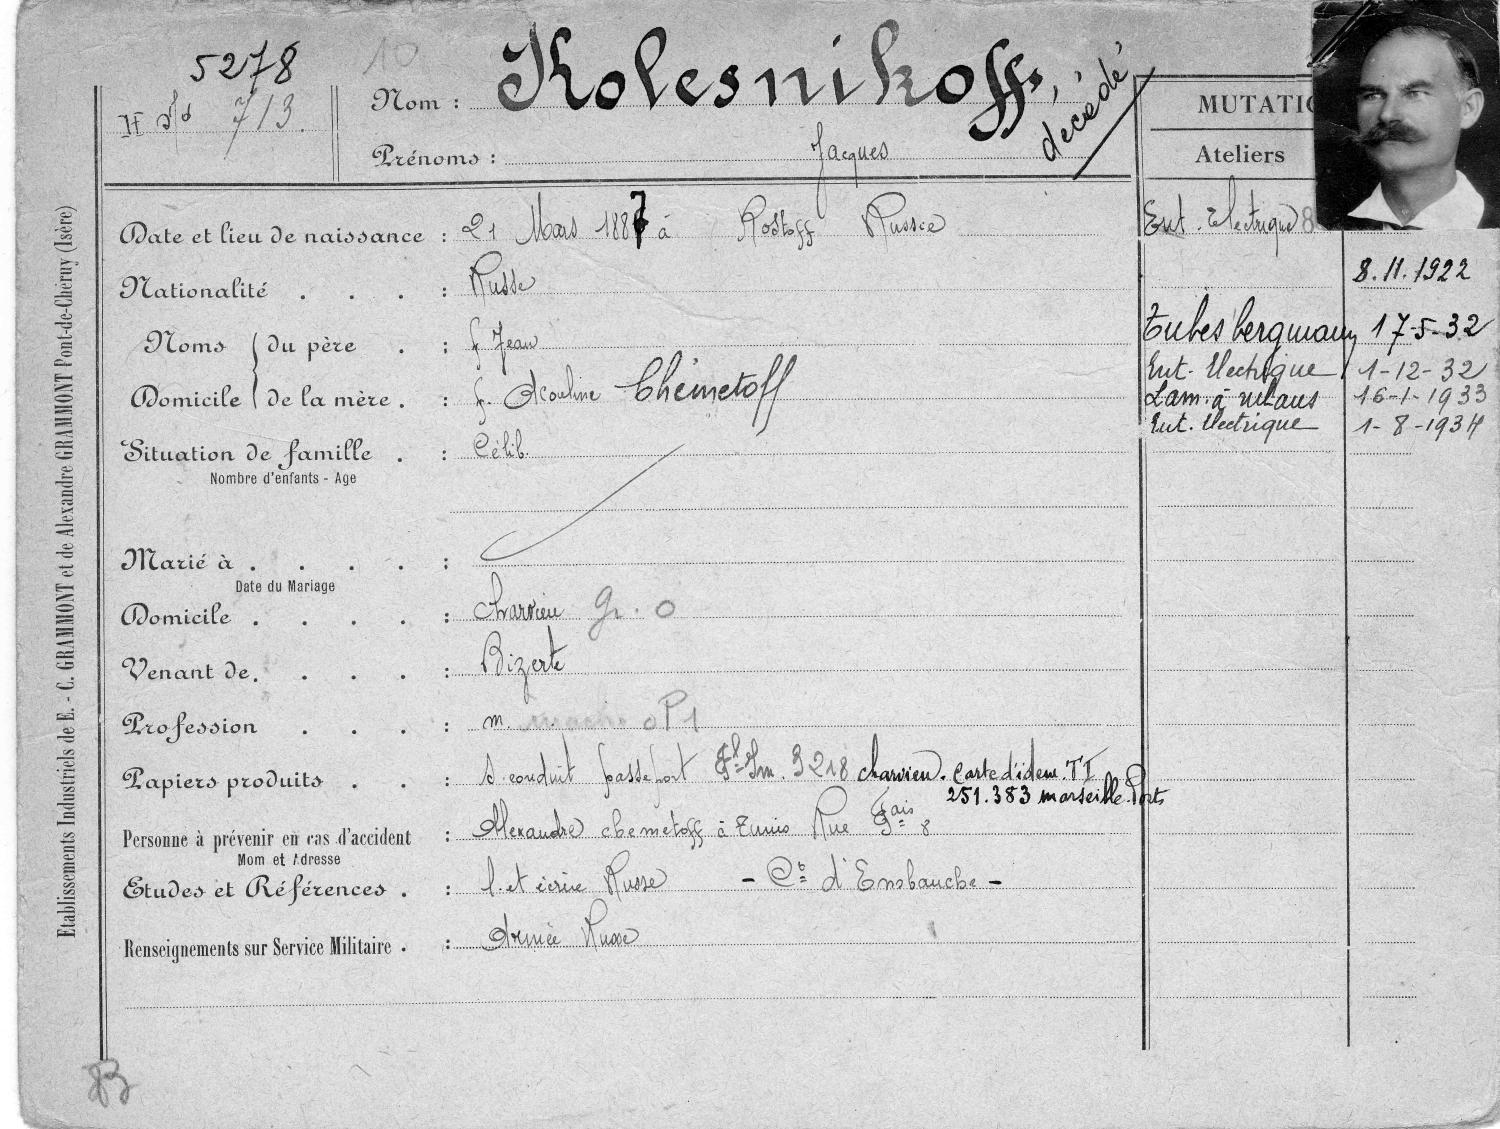 5278
10
713.
Nom : Kolesnikoff, décédé
Prénoms : Jacques
Date et lieu de naissance : 21 Mars 1887 à Rostoff Russie
Nationalité . . . : Russe
Noms du père . : f Jean
Domicile de la mère . : f. Acouline Chémetoff
Situation de famille . : Célib.
Nombre d'enfants - Age
Marié à . . . . :
Date du Mariage
Domicile . . . . : Charvieu Gr. O
Venant de. . . . : Bizerte
Profession . . . : m. OP1
Papiers produits . . : S. conduit passeport 3218 charvieu. Carte d'iden. TI
251.383 marseille. Ports
Personne à prévenir en cas d'accident : Alexandre chemetoff à Tunis Rue 8
Mom et Adresse
Etudes et Références . : l. et écrire Russe - Ct d'Embauche -
Renseignements sur Service Militaire . : Armée Russe
MUTATIO
Ateliers
Ent. Electrique 8
8.11.1922
Tubes bergmann 17-5-32
Ent. Electrique 1-12-32
Lam. à 16-1-1933
Ent. Electrique 1-8-1934
Etablissements Industriels de E. - C. GRAMMONT et de Alexandre GRAMMONT Pont-de-Chéruy (Isère)